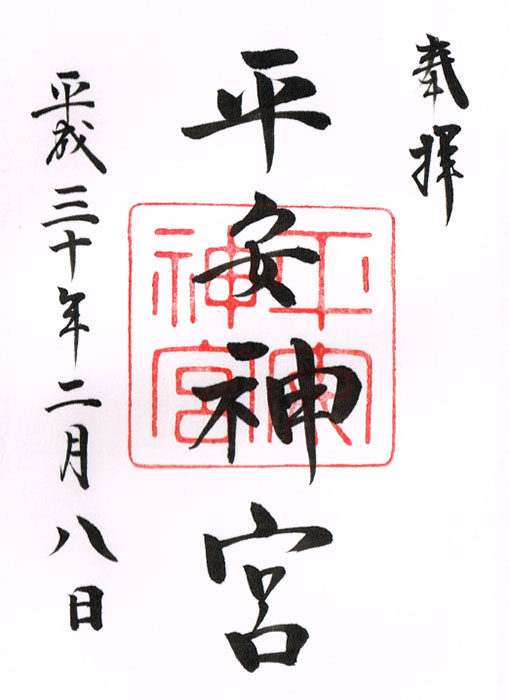 奉拝
平安神宮
平安
神宮
平成三十年二月八日